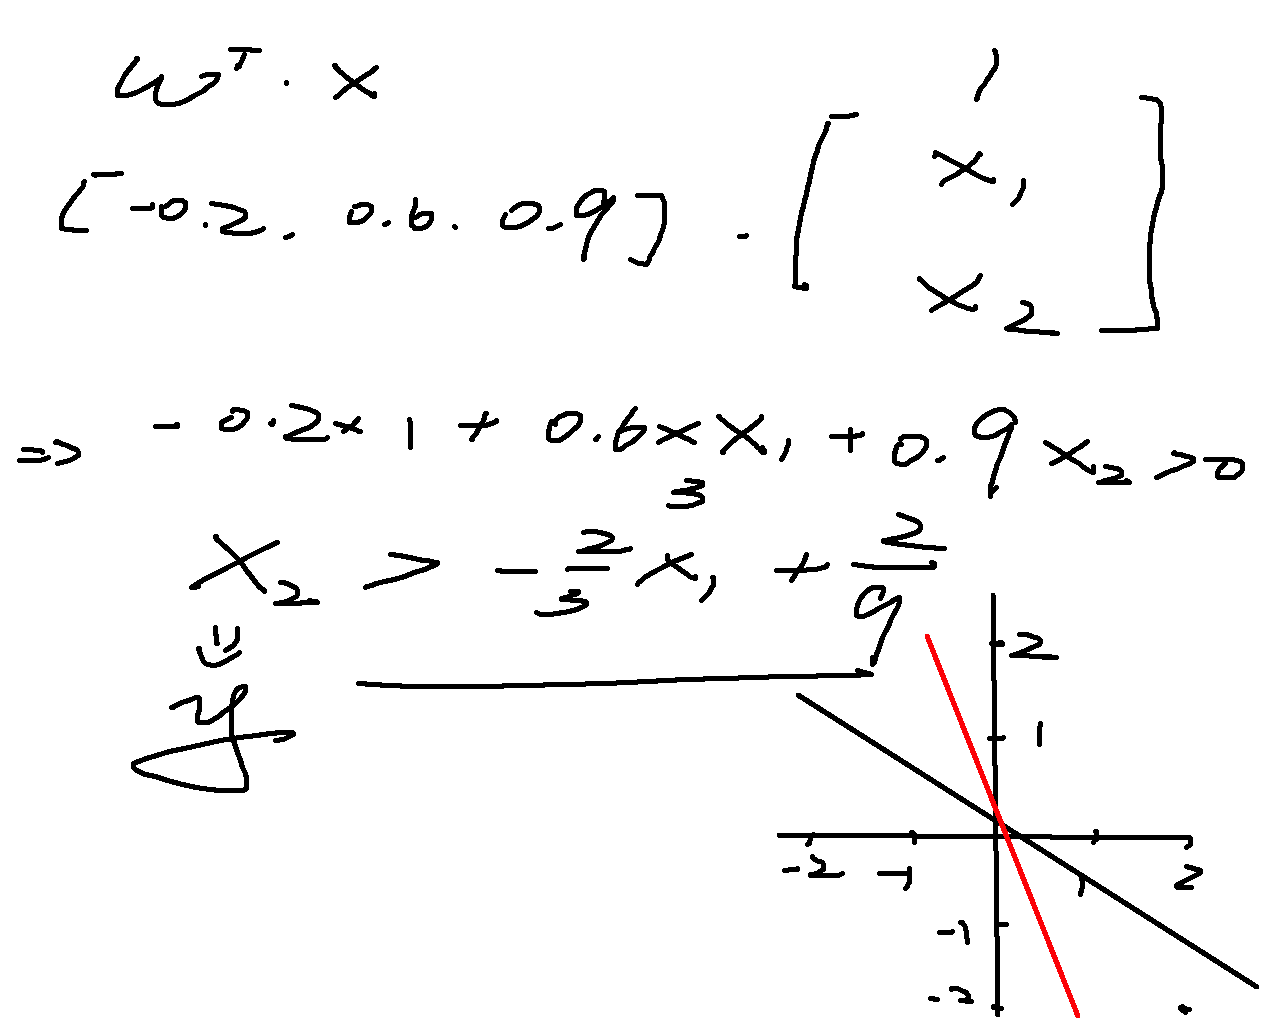 w^T · x
[-0.2. 0.6. 0.9] · [1
x₁
x₂]
=> -0.2×1 + 0.6×x₁ + 0.9x₂ >0
3
x₂ > -2/3 x₁ + 2/9
y
2
1
-2 -1 1 2
-1
-2